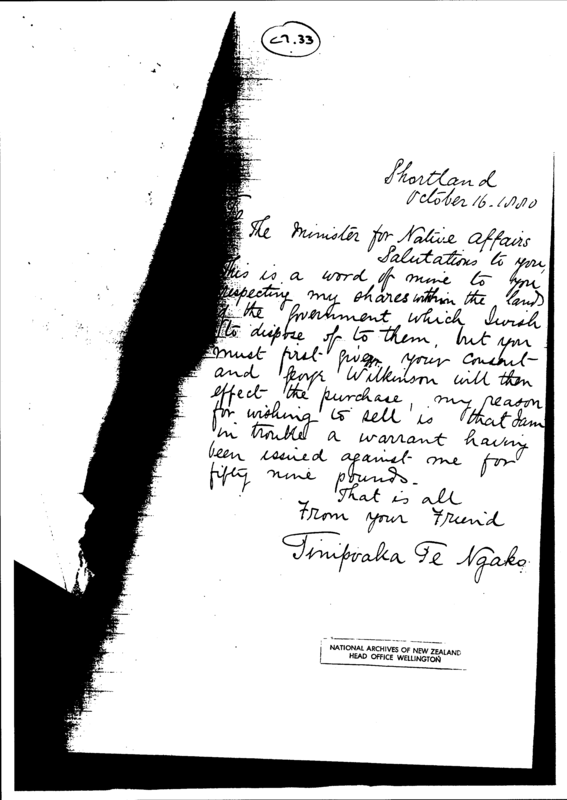 C7.33
Shortland
October 16. 1880
To
The Minister for Native Affairs
Salutations to you,
This is a word of mine to you
respecting my shares within the lands
of the Government which I wish
to dispose of to them, but you
must first given your consent
and George Wilkinson will then
effect the purchase, my reason
for wishing to sell is that I am
in trouble a warrant having
been issued against me for
fifty nine pounds.
That is all
From your Friend
Te Ngako
NATIONAL ARCHIVES OF NEW ZEALAND
HEAD OFFICE WELLINGTON